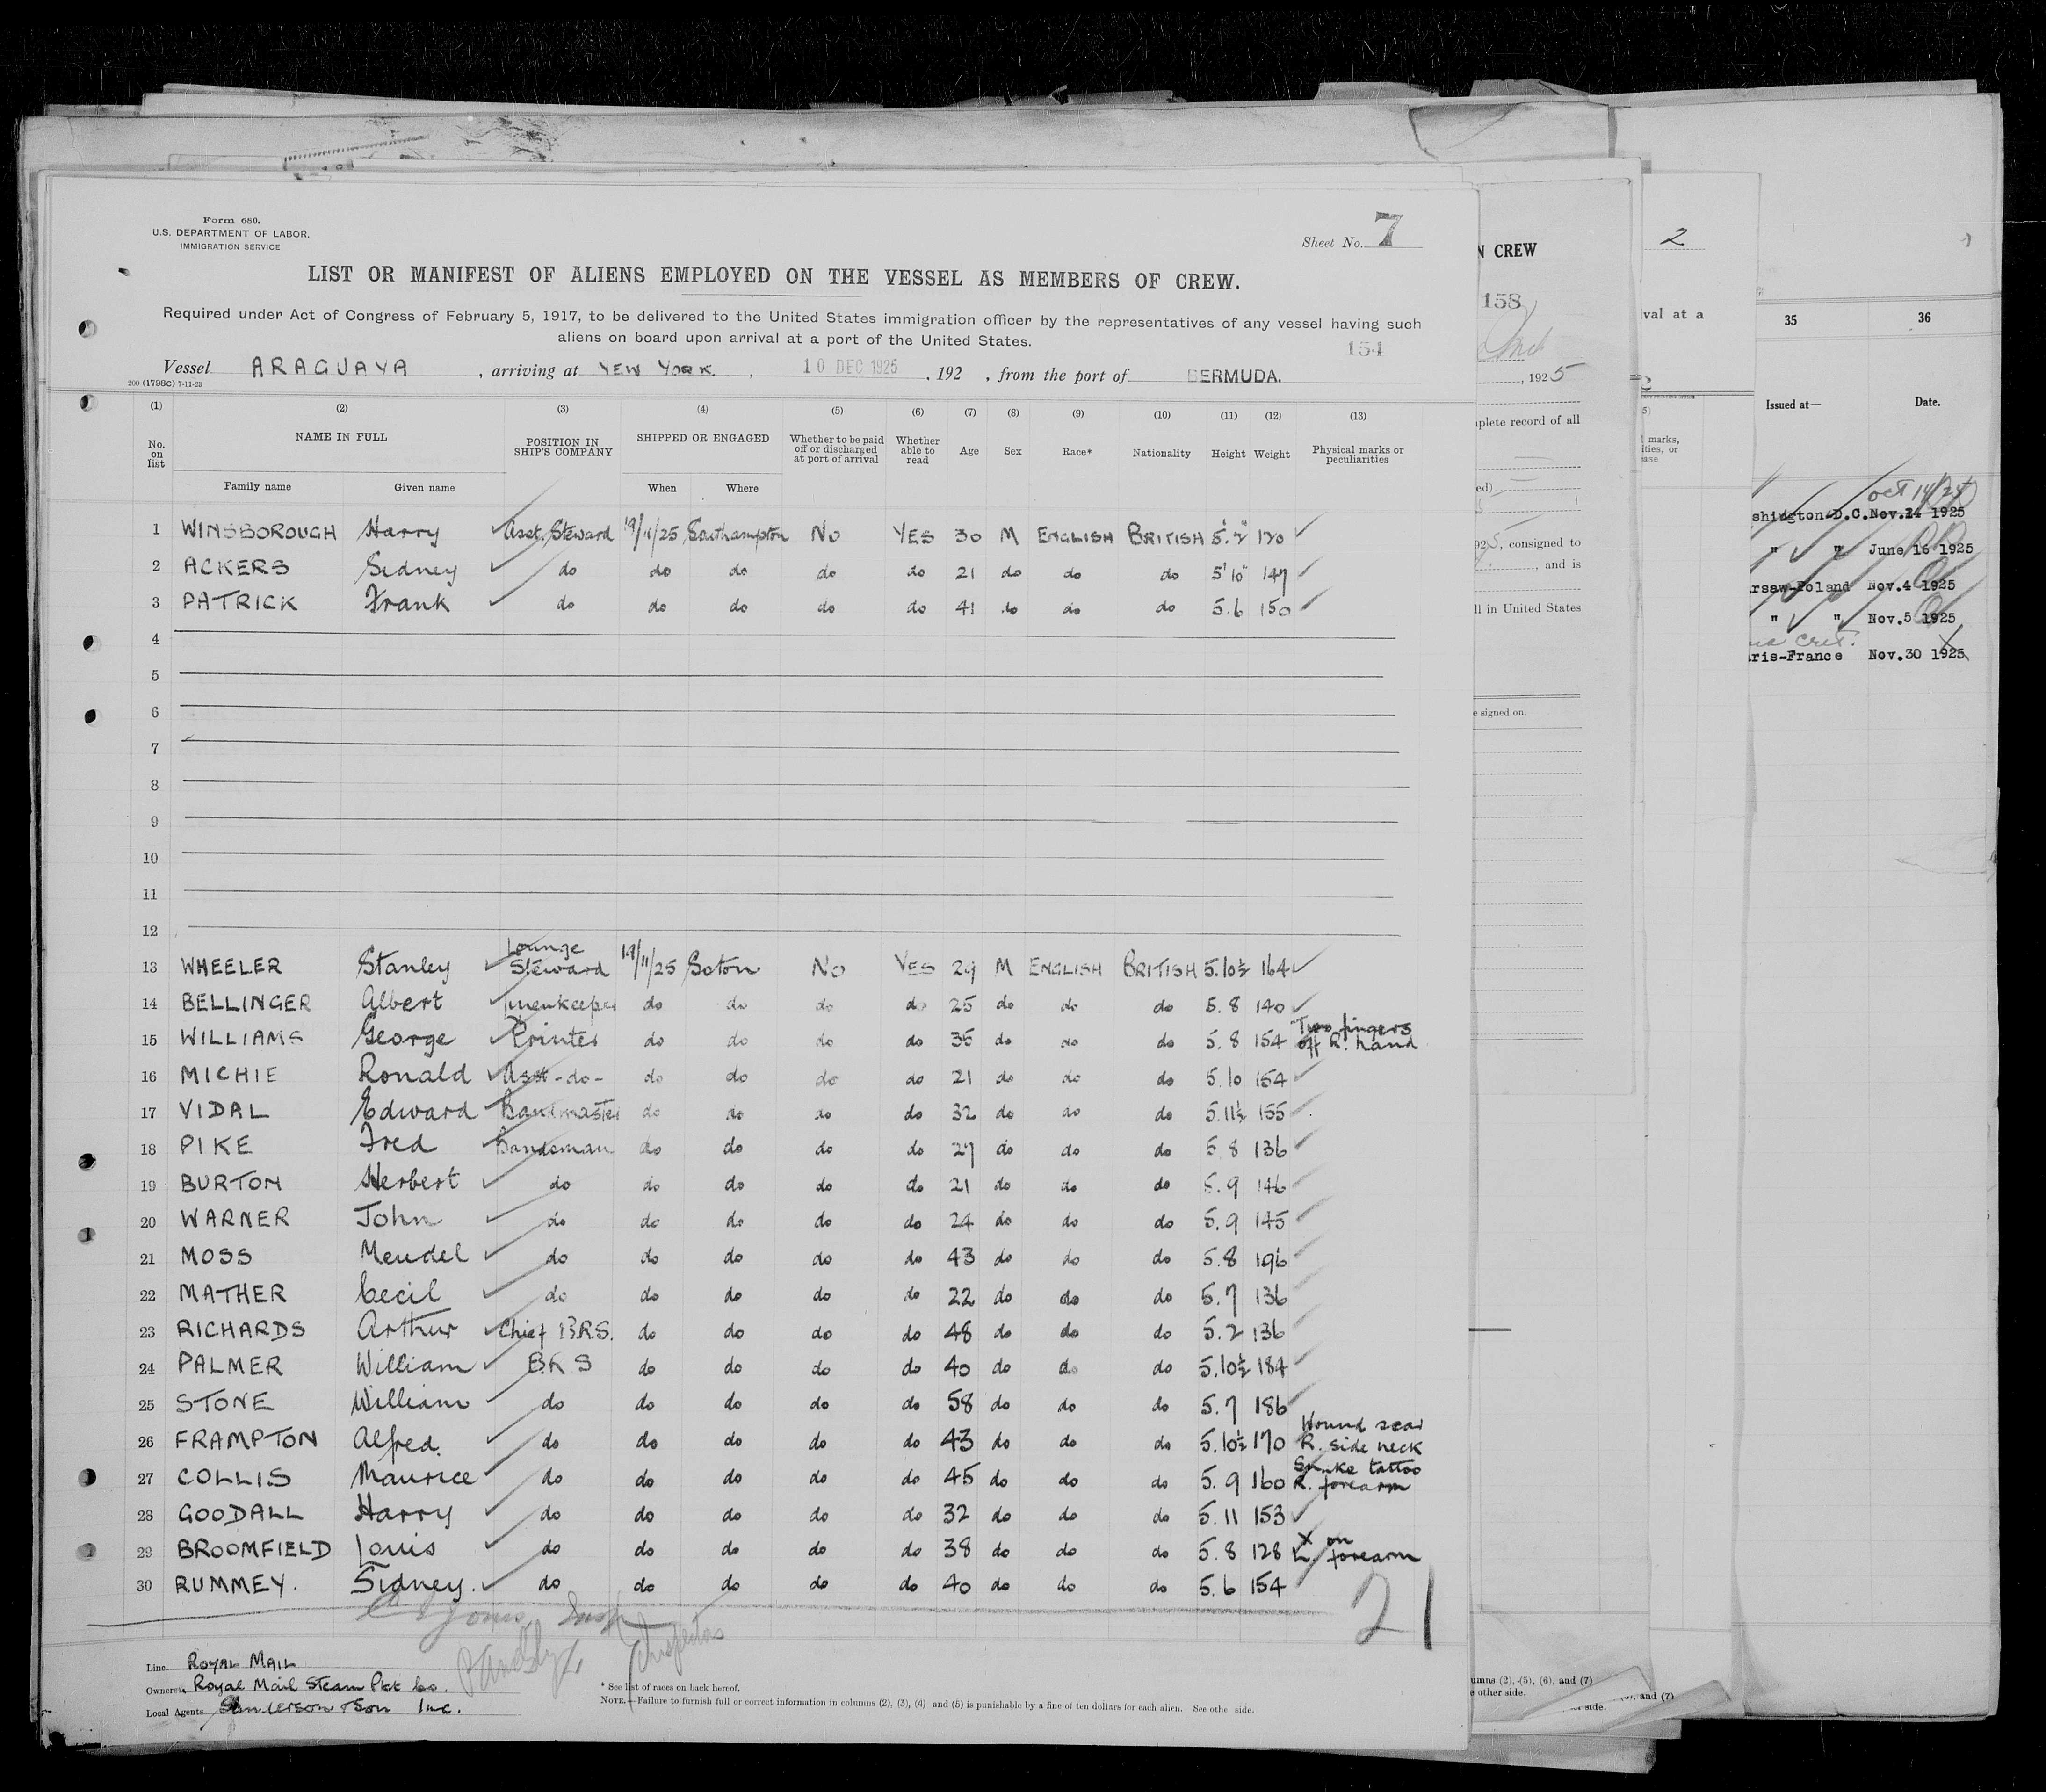 Form 680.
U.S. DEPARTMENT OF LABOR,
IMMIGRATION SERVICE
Sheet No. 7
LIST OR MANIFEST OF ALIENS EMPLOYED ON THE VESSEL AS MEMBERS OF CREW.
Required under Act of Congress of February 5, 1917, to be delivered to the United States immigration officer by the representatives of any vessel having such
aliens on board upon arrival at a port of the United States.
154
Vessel ARAGUAYA, arriving at NEW YORK. 10 DEC 1925, 192 , from the port of BERMUDA.
200 (1798C) 7-11-23
(1) (2) (3) (4) (5) (6) (7) (8) (9) (10) (11) (12) (13)
No. on list NAME IN FULL POSITION IN SHIP'S COMPANY SHIPPED OR ENGAGED Whether to be paid off or discharged at port of arrival Whether able to read Age Sex Race* Nationality Height Weight Physical marks or peculiarities
Family name Given name When Where
1 WINSBOROUGH Harry Asst. Steward 19/11/25 Southampton No YES 30 M ENGLISH BRITISH 5'.2" 120
2 ACKERS Sidney do do do do do 21 do do do 5'10" 147
3 PATRICK Frank do do do do do 41 do do do 5.6 150
4
5
6
7
8
9
10
11
12
13 WHEELER Stanley Lounge Steward 19/11/25 Soton No YES 29 M ENGLISH BRITISH 5.10½ 164
14 BELLINGER Albert Linenkeeper do do do do 25 do do do 5.8 140
15 WILLIAMS George Printer do do do do 35 do do do 5.8 154 Two fingers off R. hand
16 MICHIE Ronald Asst -do- do do do do 21 do do do 5.10 154
17 VIDAL Edward Bandmaster do do do do 32 do do do 5.11½ 155
18 PIKE Fred Bandsman do do do do 27 do do do 5.8 136
19 BURTON Herbert do do do do do 21 do do do 5.9 146
20 WARNER John do do do do do 24 do do do 5.9 145
21 MOSS Mendel do do do do do 43 do do do 5.8 196
22 MATHER Cecil do do do do do 22 do do do 5.7 136
23 RICHARDS Arthur Chief B.R.S. do do do do 48 do do do 5.2 136
24 PALMER William B.R.S do do do do 40 do do do 5.10½ 184
25 STONE William do do do do do 58 do do do 5.7 186
26 FRAMPTON Alfred. do do do do do 43 do do do 5.10½ 170 Wound scar R. side neck
27 COLLIS Maurice do do do do do 45 do do do 5.9 160 Snake tattoo R. forearm
28 GOODALL Harry do do do do do 32 do do do 5.11 153
29 BROOMFIELD Louis do do do do do 38 do do do 5.8 128 X on L. forearm
30 RUMMEY. Sidney. do do do do do 40 do do do 5.6 154
21
Inspector
Line ROYAL MAIL
Owners Royal Mail Steam Pkt Co.
Local Agents Sanderson & Son Inc.
* See list of races on back hereof.
NOTE.—Failure to furnish full or correct information in columns (2), (3), (4) and (5) is punishable by a fine of ten dollars for each alien. See othe side.
N CREW
158
, 1925
plete record of all
ed)
925, consigned to
, and is
ll in United States
e signed on.
umns (2), (5), (6), and (7)
e other side.
2
val at a
5)
marks,
ities, or
ase
and (7)
side.
35 36
Issued at— Date.
Oct 14/25
shington-D.C. Nov.24 1925
" " June 16 1925
rsaw-Poland Nov.4 1925
" " Nov.5 1925
ris-France Nov.30 1925